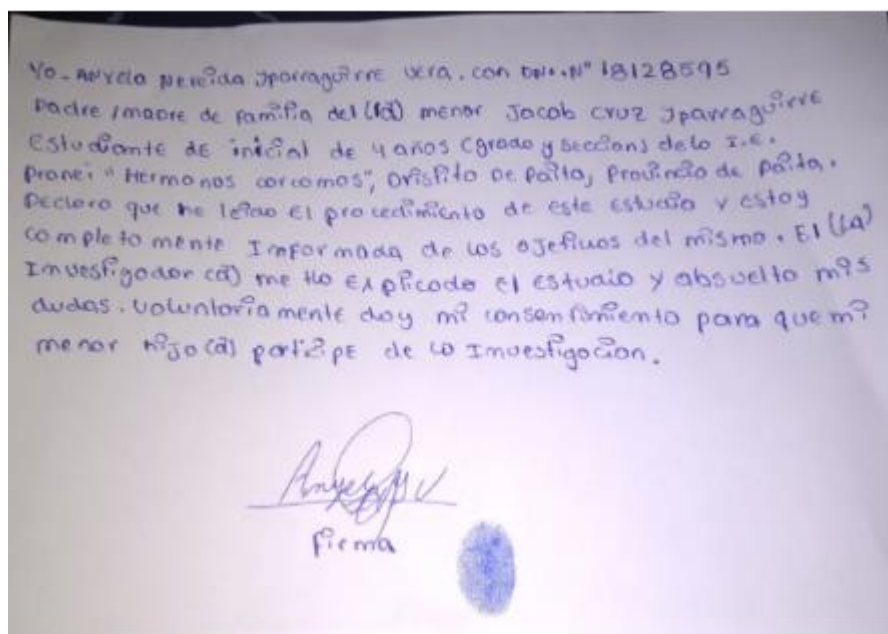 Yo - ANYELA Nereida Yparraguirre Vera. con DNI. N° 18128595
Padre /madre de familia del (la) menor Jacob Cruz Yparraguirre
Estudiante de inicial de 4 años (grado y seccions dela I.E.
Pronei "Hermanos carcamos", Distrito De Paita, Provincia de Paita.
Declaro que he leido El procedimiento de este Estudio y estoy
completamente Informada de los ojetivos del mismo. El (La)
Investigador (a) me Ha Explicado el estudio y absuelto mis
dudas. Voluntariamente doy mi consentimiento para que mi
menor Hijo (a) participe de la Investigacion.
Firma